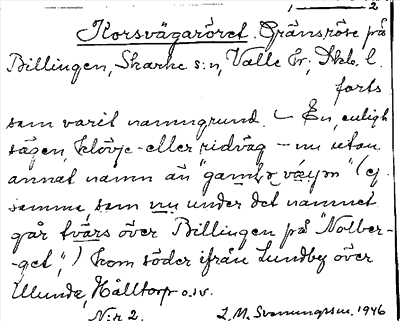 1 — 2
Korsvägaröret. Gränsröse på
Billingen, Skarke s:n, Valle hr; Skb. l.
forts
som varit namngrund. – En, enligt
sägen, klövje- eller ridväg – nu utan
annat namn än "gamḷa vägen" (ej
samma, som nu under det namnet
går tvärs över Billingen på "Nolber-
-get";) kom söder ifrån Lundby över
Ulunda, Hålltorp o.s.v.
N:r 2. L. M. Svenungsson. 1946